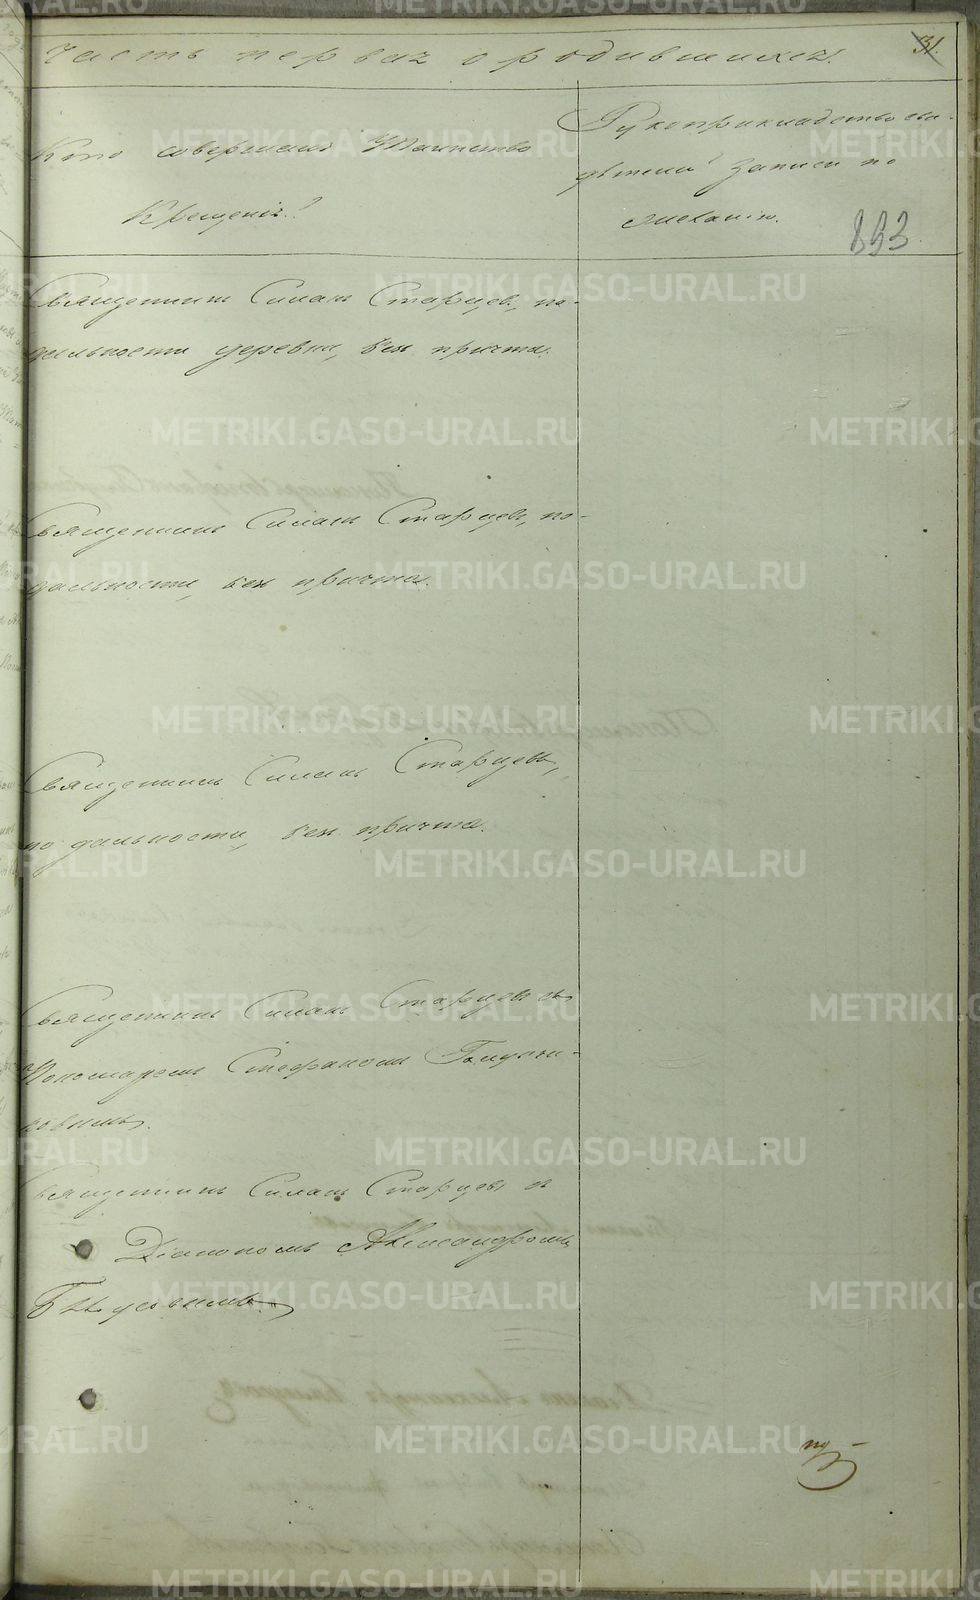 Часть первая о родившихся.
31.
Кто совершалъ Таинство
Крещенія?
Рукоприкладство сви-
дѣтелей записи по
желанію.
893
Священникъ Силанъ Старцевъ, по
дальности деревни, безъ причта.
Священникъ Силанъ Старцевъ, по
дальности, безъ причта.
Священникъ Силанъ Старцевъ,
по дальности, безъ причта.
Священникъ Силанъ Старцевъ съ
Пономаремъ Стефаномъ
Священникъ Силанъ Старцевъ съ
Діакономъ Александромъ
METRIKI.GASO-URAL.RU